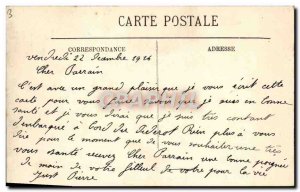 3
CARTE POSTALE
CORRESPONDANCE
ADRESSE
vendredi 22 1926
Cher Parrain
C'est avec un grand plaisir que je vous écrit cette
carte pour vous faire savoir que je suis en bonne
santé et je vous dirai que je suis très content
d'embarqué à bord du Diderot Rien plus à vous
dire pour le moment que de vous souhaiter une très
vous santé recevez Cher Parrain une bonne poignée
de main de votre filleul de votre pour la vie
Just Pierre